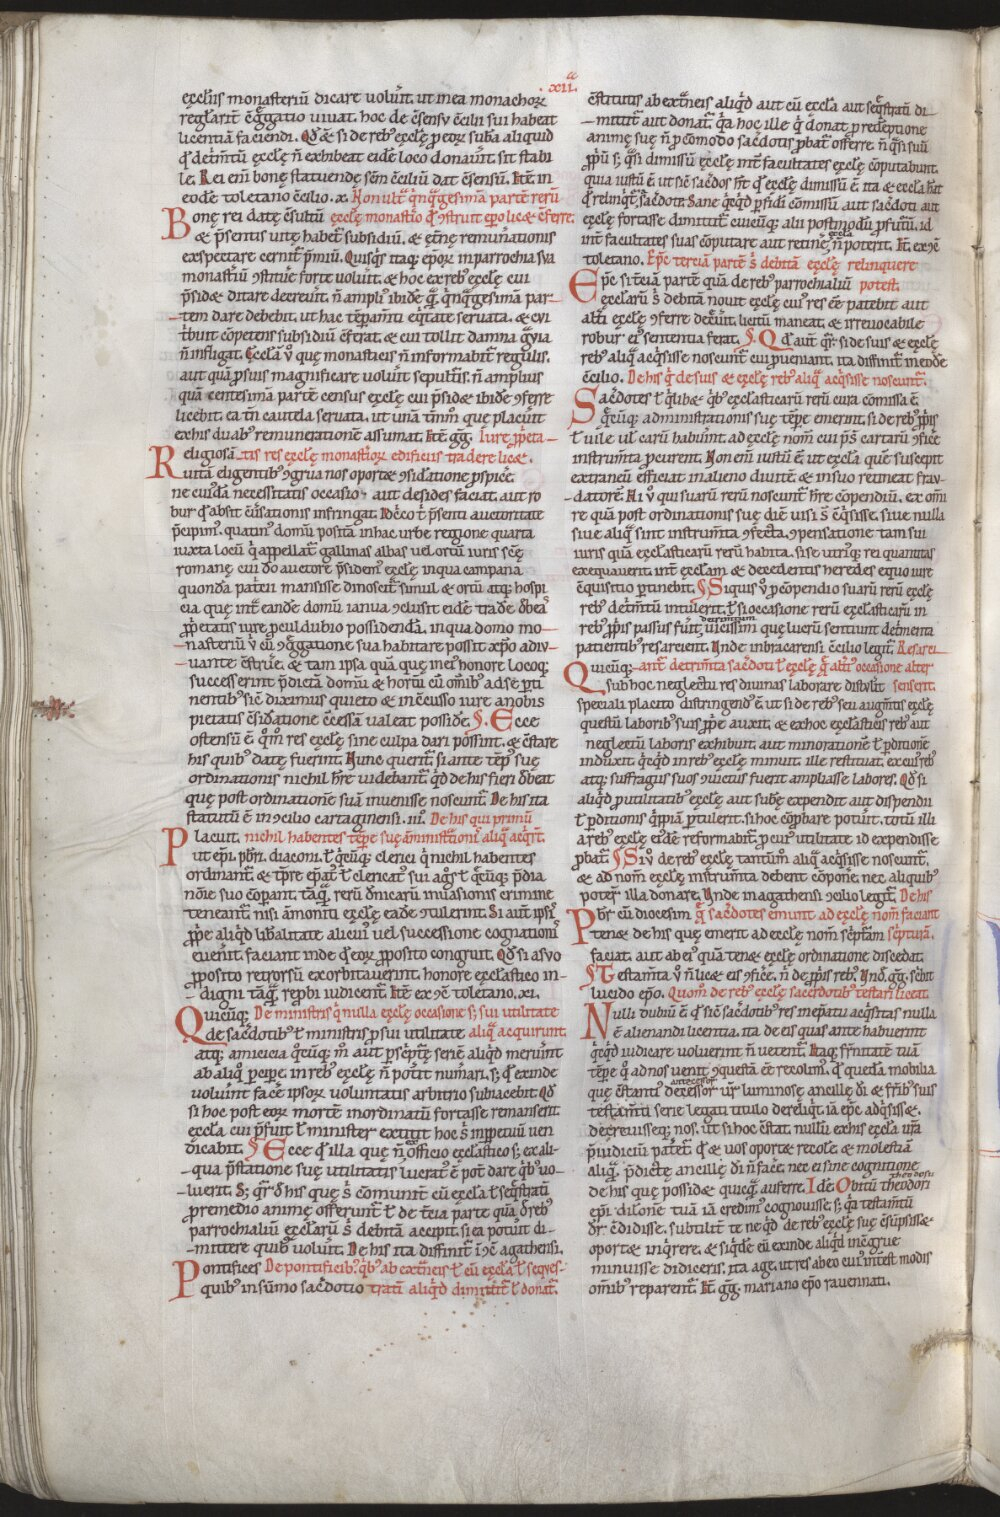 .xii. ca
ęccl̄iis monasteriū dicare voluīt. ut in ea monachorꝝ
regłarit̄ c̄g̃gatio vivat. hoc de c̄sensu c̄cilii sui habeat
licentiā faciendi. Qđ ē si de rebꝰ ęccl̄ę ꝑ eorꝝ subst̄a aliquid
qđ det̄m̄tū ęccl̄ę n̄ exhibeat eidē loco donauīt. sit stabi
le. Rei enī bonę statuendę sc̄m c̄ciliū dat c̄sensū. Itē in
eodē toletano c̄cilio. x. Non ult̃ q̄nq̃gesimā partē rerū
Bonę rei datę c̄sultū ęccl̄ę monasť̄io qđ ꝯstruit ep̄o licꝫ c̄ferre.
& p̄sentis vitę habet̃ subsidiū. & ęt̄nę remun̄ationis
exspectare cernit̃ p̄miū. Quisqꝫ itaqꝫ ep̄orꝝ in parrochia sua
monasť̄iū ꝯstitue forte voluīt. & hoc ex rebꝰ ęccl̄ę cui
p̄sidꝫ ditare decreuīt. n̄ ampliꝰ ibidē q̃ q̄nq̃gesimā par
tem dare debebit. ut hac tēꝑam̄ti ęq̄tate seruata. & cui
t̄buit cōpetens subsidiū c̄ferat. & cui tollit damna g̃uia
n̄ infligat. Ęccl̄ā ū quę monasticis n̄ informabit̃ regulis.
aut quā ꝑ suis magnificare voluīt sepult̄is. n̄ amplius
quā centesimā partē census ęccl̄ę cui p̄sidꝫ ibidē ꝯferre
licebit. ea tn̄ cautela seruata. ut unā tm̄m quę placuīt
ex his duabꝰ remunerationē assumat. Itē gg̃. Iure ꝓp̄eta
Religiosā tis res ęccl̄ę monasť̄iorꝝ edificiis tradere licꝫ.
vitā eligentibꝰ ꝯgrua nos oportꝫ ꝯsid̄atione ꝓspic̄e.
ne cuiꝰdā necessitatis occasio aut desides faciat. aut ro
bur qđ absit c̄ūsationis infringat. Idc̄co p̄senti auctoritate
p̄cipimꝰ. quatinꝰ domū positā in hac urbe regione quarta
iuxta locū q̄ appellat̃ gallinas albas vel ortū iuris sc̄ę
romanę cui do auctore p̄sidemꝰ ęccl̄ę in qua campana
quondā pat̄cii mansisse dinoscit̃ simul & ortū atqꝫ hospi
cia quę int̄ eandē domū ianua ꝯclusit eidē tradē đbeaꝰ
ꝓp̄etatis iure procul dubio possidenda. in qua domo mo
nasteriū ū cū ꝯg̃gatione sua habitare possit xp̄o adiu
vante c̄struę. & tam ipsa quā quę in eiꝰ honore locoqꝫ
successerint p̄dictā domū & hortū cū om̄ibꝰ ad se ꝑti
nentibꝰ sic̄ diximus quieto & inc̄cusso iure a nobis
pietatis c̄sid̄atione c̄cessā valeat possidē. §. Ecce
ostensū ē. q̄m̄ res ęccl̄ę sine culpa dari possint. & c̄stare
his quibꝰ datę fuerint. Nunc querit̃ si ante tēpꝰ suę
ordinationis nichil hr̄e uidebant̃ qđ de his fieri đbeat
quę post ordinationē suā invenisse noscunt̃. De his ita
statutū ē in ꝯcilio cartaginensi. iiiº. De his qui primū
Placuit. nichil habentes tēp̄e suę ām̄inist̃tionis aliq̃ acq̄rt̃.
ut ep̄i. pb̄ri. diaconi. ł q̄cūqꝫ clerici q̄ nichil habentes
ordinant̃ & tp̄re ep̄atꝰ ł clericatꝰ sui agłs ł q̄cūqꝫ p̄dia
nōi͞e suo cōparant. taq̃ rerū dn̄icarū invasionis crimine
teneant̃. nisi am̄oniti ęccl̄ę eadē ꝯtulerint. Si aut̄ ipsiꝰ
ꝓp̄e aliq̄d lib̄alitate alicuiꝰ vel successione cognationiꝰ
euen̄it. faciant inde qđ eorꝝ ꝓposito congruit. Qđ si a suo
ꝓposito retrorsū exorbitauerint. honore ęccl̄astico in
digni taq̃ rep̄bi iudicent̃. Itē ex ꝯc̄ toletano. xi.
Quicūqꝫ De ministris q̄ nulla ęccl̄ę occasione sꝫ sui utilitate
de sac̄dotibꝰ ł ministris ꝑ sui utilitate aliq̃ acquirunt.
atqꝫ amicicia q̄cūqꝫ m̄ aut ꝑ sc̄ptę seriē aliq̄d meruīnt
ab aliq̄ ꝑcipe. in rebꝰ ęccl̄ę n̄ pot̄it num̄ari. sꝫ qđ exinde
voluīnt fac̄e ipsorꝝ voluntatis arbitrio subiacebit. Qđ
si hoc post eorꝝ mortē inordinatū fortasse remanserit
ęccl̄a cui p̄fuīt ł minister extitit hoc s̄ in ꝑpetuū ven
dicabit. § Ecce qđ illa quę n̄ officio ęccl̄astico sꝫ ex ali
qua p̄statione suę utilitatis luc̄atꝰ ē pot̄ dare q̄bꝰ vo
luerit. sꝫ q̄r̄ đ his quę s̄ comunit̄ cū ęccl̄a ł seq̄strati
pro remedio animę offerunt̃ ł de t̄cia parte quā đ rebꝰ
parrochialiū ęccl̄arū s̄ debitā accepit. si ea potuīt di
mittere quibꝰ voluīt. De his ita diffinit̃ ī ꝯc̄ agathensi.
Pontifices De pontificibꝰ. q̄bꝰ ab ext̃neis ł cū ęccl̄a ł seques
quibꝰ in sūmo sac̄dotio tratī aliq̄d dimittit̃ ł donat̃.
c̄stitutis ab ext̃neis aliq̄d aut cū ęccl̄a aut seq̄stratī di
mittit̃ aut donat̃. q̄a hoc ille q̄ donat ꝑ redeptione
animę suę n̄ ꝑ cōmodo sac̄dotis ꝓbat̃ offerre. n̄ q̄si suū
ꝓp̄ū sꝫ q̄si dimissū ęccl̄ę int̄ facultates ęccl̄ę cōputabunt.
quia iustū ē. ut sic̄ sac̄dos ht̄ qđ ęccl̄ę dimissū ē. ita & ęccl̄a h̄at
qđ relinq̄t̃ sac̄doti. Sane q̄cq̄d ꝑ fidī cōmissū aut sac̄doti aut
ęccl̄ę fortasse dimittit̃ cuicūqꝫ alii postmodū ꝓfutū. id
int̄ facultates suas cōputare aut retinę ęccl̄a n̄ poterit. Itē ex ꝯc̄
toletano. Ep̄c terciā partē s̄ debitā ęccl̄ę relinquere
Ep̄c si t̄ciā partē quā de rebꝰ parrochialiū potest.
ęccl̄arū s̄ debitā nouit ęccl̄ę cuiꝰ res ēē patebit aut
alt̄i ęccl̄ę ꝯferre dec̄uīt. licitū maneat. & irreuocabile
robur eiꝰ sententia ferat. §. Qđ aut̄ q̄r̄ si de suis & ęccl̄ę
rebꝰ aliq̄ acq̄sisse noscunt̃ cui ꝓueniant. ita diffinit̃ in eodē
c̄cilio. De his q̄ de suis & ęccl̄ę rebꝰ aliq̃ acq̄sisse noscunt̃.
Sac̄dotes ł q̄libꝫ q̄bꝰ ęccl̄asticarū rerū cura comissa ē
q̄cūqꝫ administrationis suę tēp̄e emerint. si de rebꝰ ꝓp̄is
ł uile ul̄ earū habuīnt. ad ęccl̄ę nom̄ cui p̄s̄ cartarū ꝯfic̄e
instrum̄ta ꝓcurent. Non enī iustū ē. ut ęccl̄a quē suscepit
extraneū. efficiat in alieno diuitē. & in suo retineat frau
datorē. Hi ū qui suarū rerū noscunt̃ hr̄e cōpendiū. ex om̄i
re quā post ordinationis suę diē visi s̄ c̄q̄sisse. siue nulla
siue aliq̃ sint instrum̄ta ꝯfecta. ꝯpensatione tam sui
iuris quā ęccl̄asticarū rerū habita. si se utriꝰqꝫ rei quantitas
exequauerit. int̄ ęccl̄am & decedentis heredes equo iure
c̄quisitio ꝑtinebit. § Siquis ū ꝑ cōpendio suarū rerū ęccl̄ę
rebꝰ det̄m̄tū intulerit. ł si occasione rerū ęccl̄asticarū in
rebꝰ ꝓp̄is passus fuīt de reditum uicissim quę lucrū sentiunt det̄menta
patientibꝰ resarcient. Unde in bracarensi c̄cilio legit̃. Resarci
Quicūqꝫ ant̃ detrim̄ta sac̄doti ł ęccl̄ę q̃ alt̄iꝰ occasione alter
sub hoc neglectu res diuinas laborare distulit senserit.
speciali placito distringendꝰ ē. ut si de rebꝰ seu augm̄tis ęccl̄ę
questū laboribꝰ suis ꝓp̄e auxit. & ex hoc ęccl̄asticis rebꝰ aut
neglectū laboris exhibuit. aut minorationē ł ꝑditionē
induxit. q̄cq̄d in rebꝰ ęccl̄ę minuit. ille restituat. ex cuiꝰ rebꝰ
atqꝫ suffragiis suos ꝯuictus fuerit ampliasse labores. Qđ si
aliq̄d ꝑ utilitatibꝰ ęccl̄ę aut subst̄ę expendit. aut dispendii
ł ꝑditionis q̄ppiā ꝑtulerit. si hoc cōꝓbare potuīt. totū illi
a rebꝰ ęccl̄ę eidē reformabit̃. ꝑ cuiꝰ utilitate id expendisse
ꝓbat̃. § Si ū de rebꝰ ęccl̄ę tantum aliq̃ acq̄sisse noscunt̃.
& ad nom̄ ęccl̄ę instrum̄ta debent cōponēe. nec aliquibꝰ
poterit illa donare. Unde in agathensi ꝯcilio legit̃. De his
Pbr̄ cū diocesim q̃ sac̄dotes emunt ad ęccl̄ę nom̄ faciant
tenꝫ de his quę emerit ad ęccl̄ę nom̄ sc̄ptā sc̄pturā.
faciat. aut ab eiꝰ quā tenꝫ ęccl̄ę ordinatione discedat.
§ Testam̄ta ū n̄ licꝫ eis ꝯfic̄e. n̄ de ꝓp̄is rebꝰ. Unđ. gg̃. sc̄bit
lucido ep̄o. Quom̄ de rebꝰ ęccl̄ę sacerdotibꝰ testari liceat.
Nulli dubiū ē qđ sic̄ sac̄dotibꝰ res in ep̄atu acq̄sitas nulla
ē alienandi licentia. ita de eis quas ante habuerint
q̄cq̄d iudicare voluerint n̄ vetent̃. Itaqꝫ fr̄nitatē tuā
tēp̄e q̄ ad nos venit ꝯquestā ēē recolimꝰ. qđ quedā mobilia
quę c̄stantiꝰ antecessor decessor ur̄ luminosę ancille đi & fr̄ibꝰ suis
testam̄ti serie legati titulo dereliq̄t. iā ep̄c adq̄sisset.
decreuissetqꝫ nos. ut si hoc c̄stat. nullū ex his ęccl̄a ur̄a
p̄iudiciū patet̃. qđ & uos oportꝫ recolę. & molestiā
aliq̃ p̄dictę ancillę đi n̄ fac̄e. nec ei sine cognitione
de his quę possidꝫ quicq̃ auferre. Idē. Obitū theodosii theodori
ep̄i dilonē tuā iā credimꝰ cognouisse. sꝫ q̄a testam̄tū
đr̄ c̄didisse. subtilit̄ te ne qđ de rebꝰ ęccl̄ę suę c̄supsisset
oportꝫ inq̄rere. & siq̄dē eū exinde aliq̄d inc̄grue
minuisse didiceris. ita age. ut res ab eo euiꝰ int̄est modis
om̄ibꝰ reparent̃. Itē gg̃. mariano ep̄o ravennati.